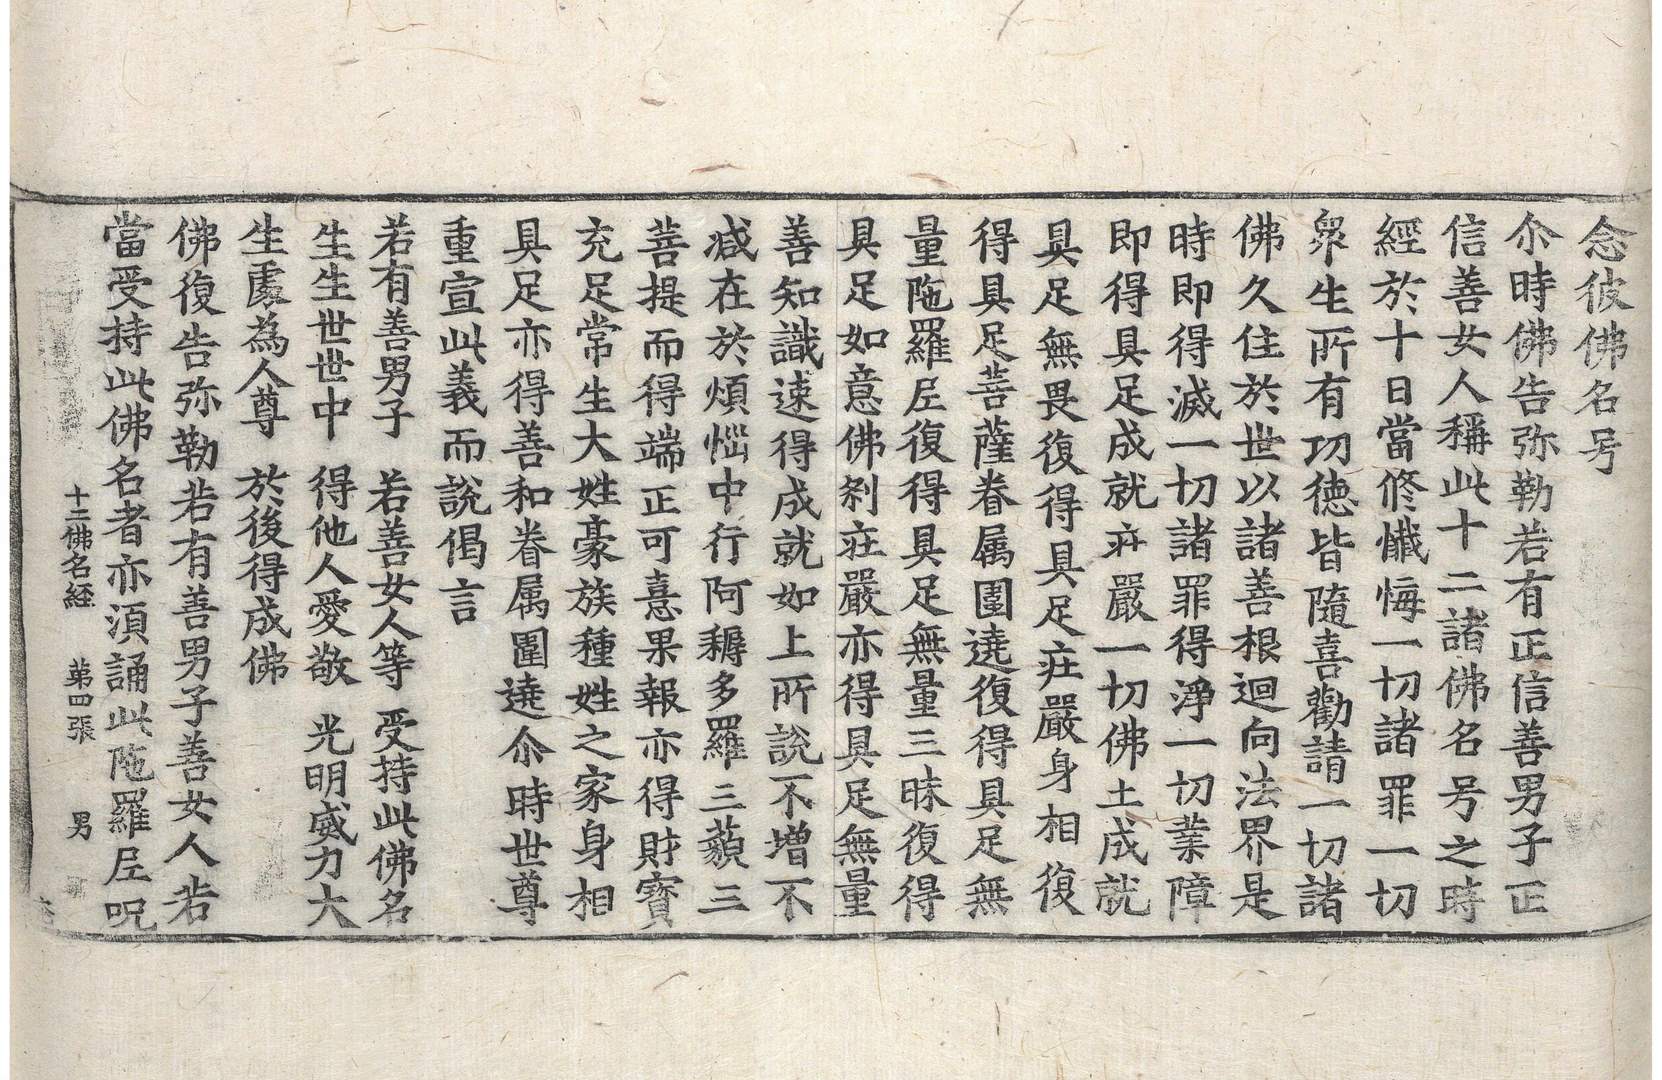 念彼佛名号
尒時佛告弥勒若有正信善男子正
信善女人稱此十二諸佛名号之時
經於十日當修懺悔一切諸罪一切
衆生所有功德皆隨喜勸請一切諸
佛久住於世以諸善根迴向法界是
時即得滅一切諸罪得淨一切業障
即得具足成就莊嚴一切佛土成就
具足無畏復得具足莊嚴身相復
得具足菩薩眷属圍遶復得具足無
量陁羅尼復得具足無量三昧復得
具足如意佛刹莊嚴亦得具足無量
善知識速得成就如上所說不增不
减在於煩惱中行阿耨多羅三藐三
菩提而得端正可憙果報亦得財寳
充足常生大姓豪族種姓之家身相
具足亦得善和眷属圍遶尒時世尊
重宣此義而說偈言
若有善男子　若善女人等　受持此佛名
生生世世中　得他人愛敬　光明威力大
生處為人尊　於後得成佛
佛復告弥勒若有善男子善女人若
十二佛名經　第四張　男
當受持此佛名者亦湏誦此陁羅尼呪